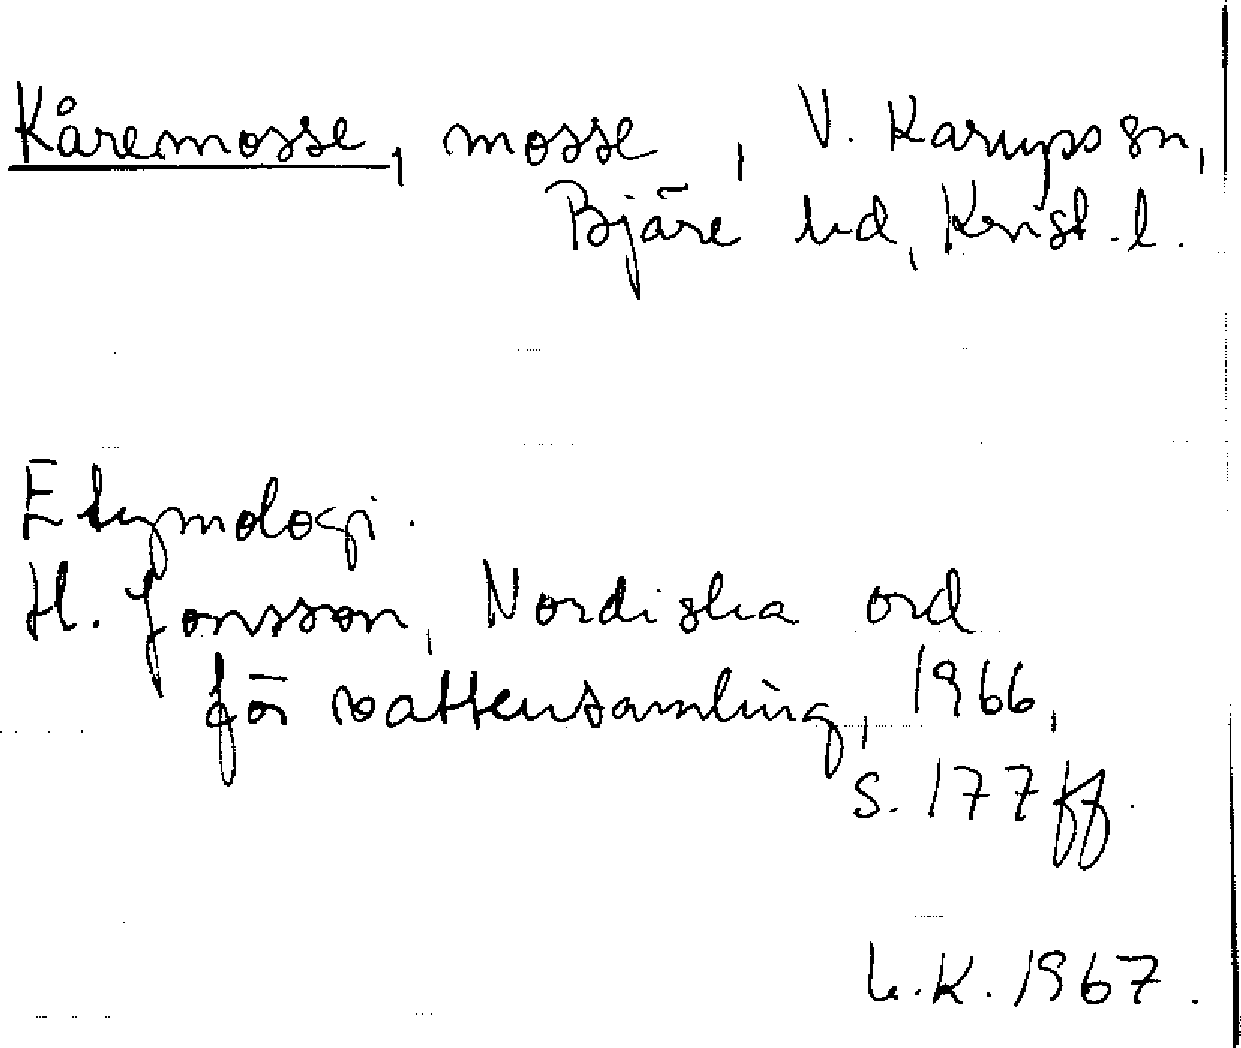 Kåremosse, mosse, V. Karups sn,
Bjäre hd, Krist. l.
Etymologi.
H. Jonsson, Nordiska ord
för vattensamling, 1966,
s. 177 ff.
L.K. 1967.